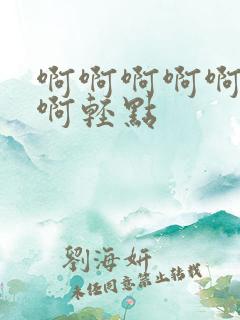 啊啊啊啊啊
啊輕點
劉海妍
未经同意禁止转载